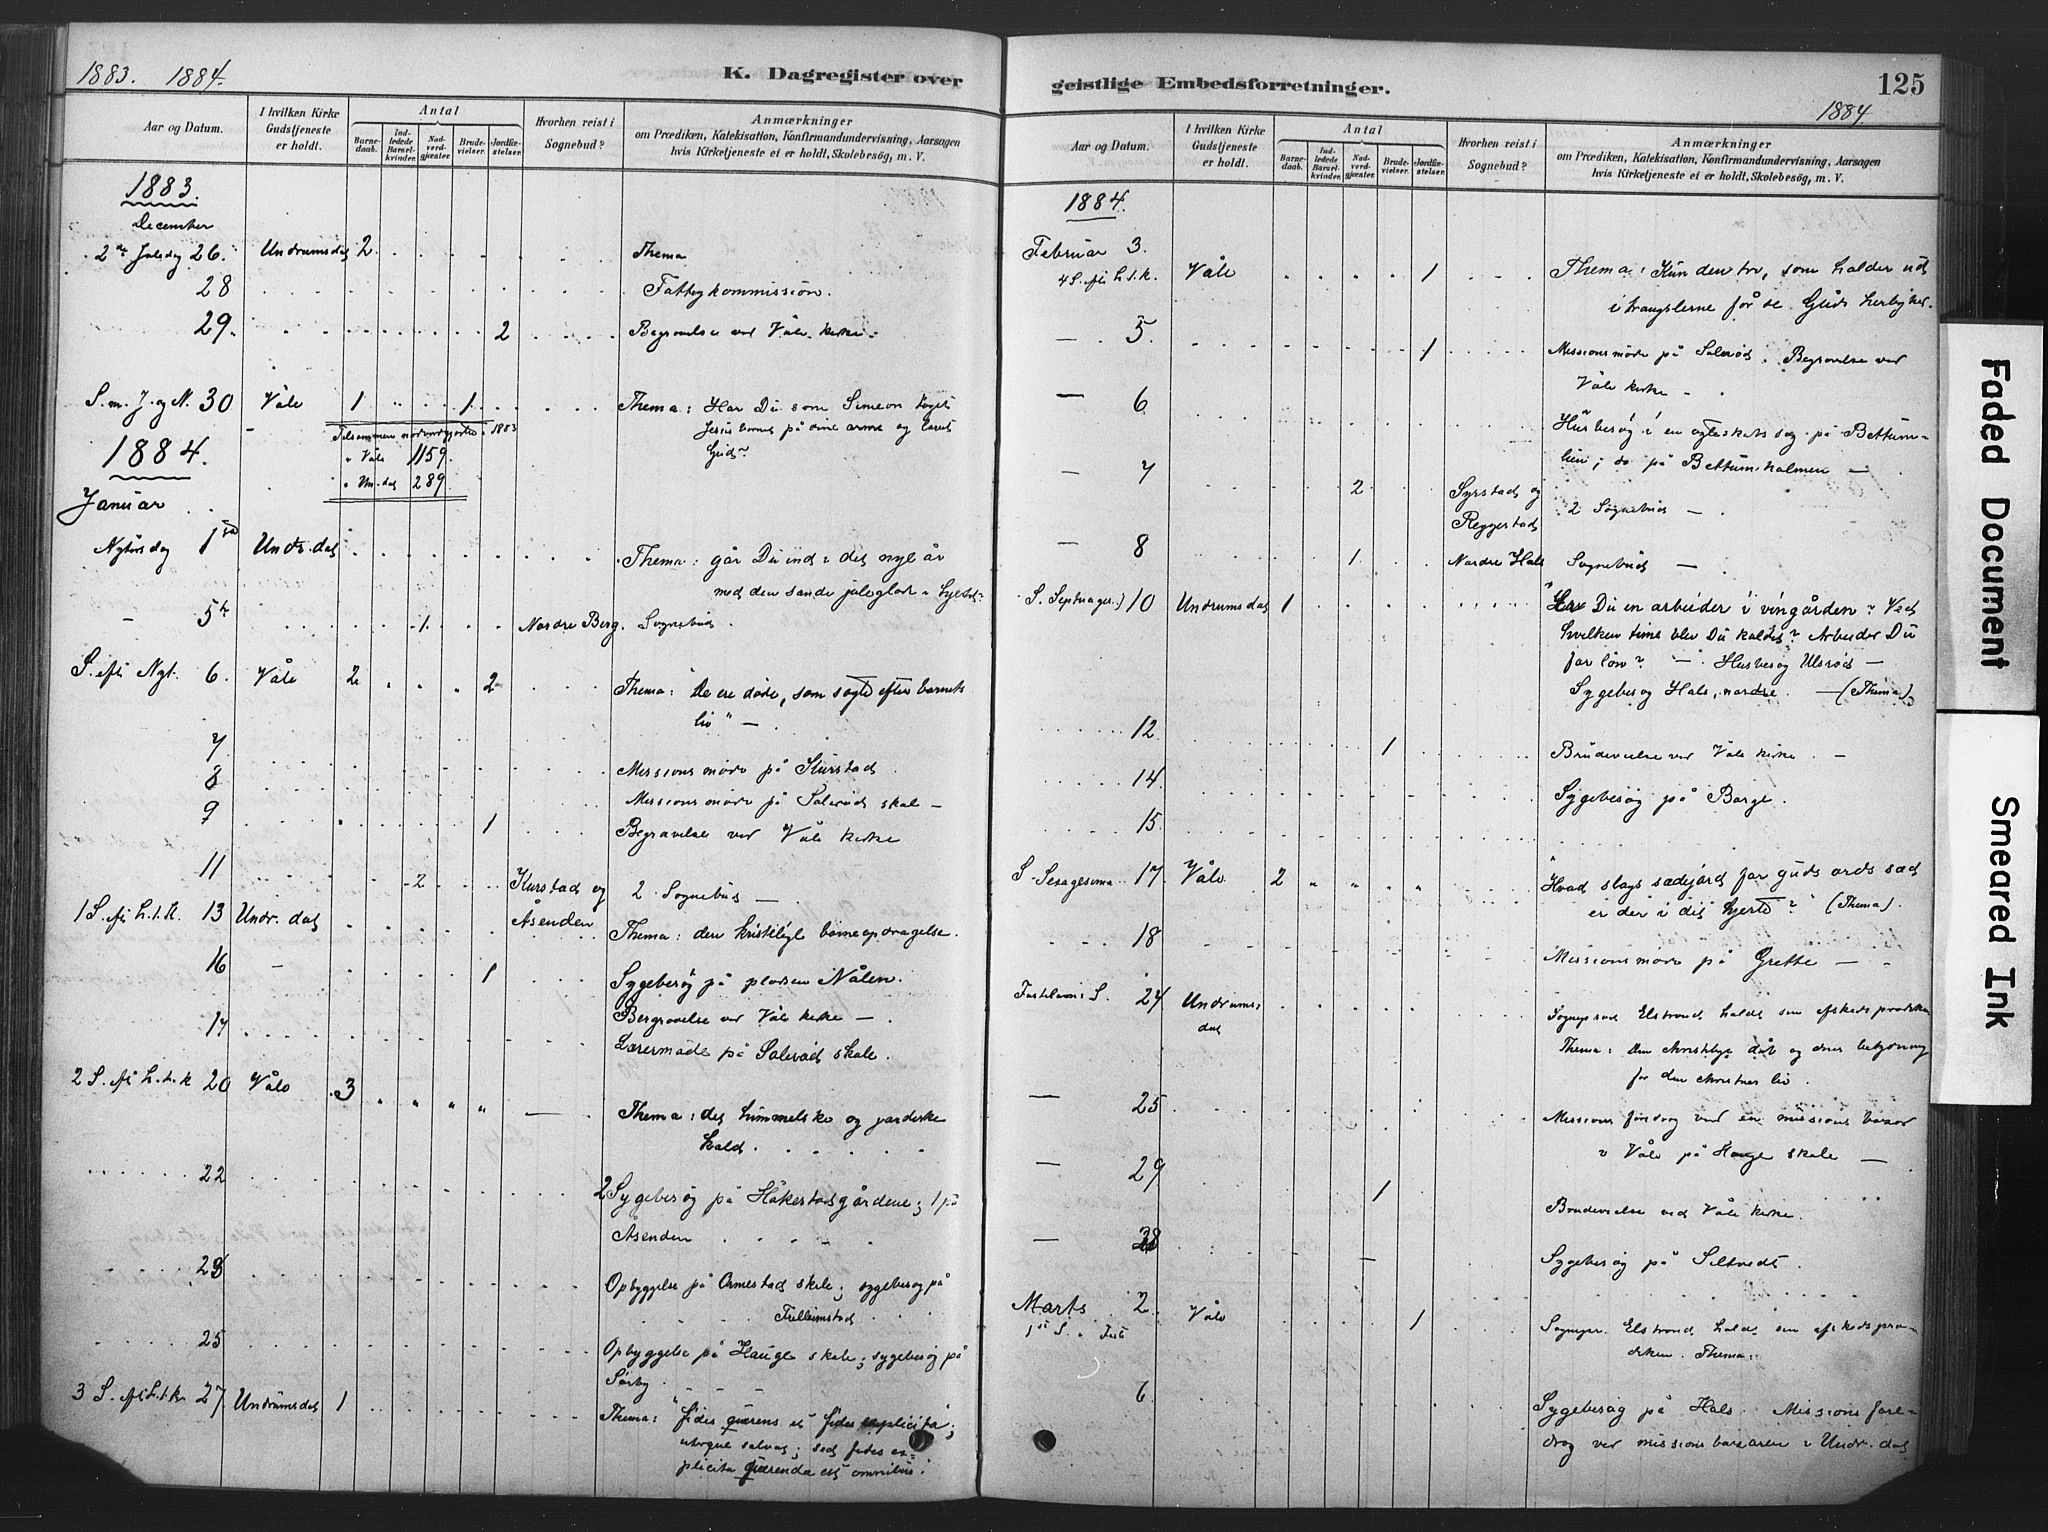 1883. 1884.
K. Dagregister over
Aar og Datum.
I hvilken Kirke Gudstjeneste er holdt.
Antal
Barne-daab.
Ind-ledede Barsel-kvinder.
Nad-verd-gjæster.
Brude-vielser.
Jordfæ-stelser.
Hvorhen reist i Sognebud?
Anmærkninger
om Prædiken, Katekisation, Konfirmandundervisning, Aarsagen
hvis Kirketjeneste ei er holdt, Skolebesøg, m. V.
1883.
December
2den Juledag 26. Undrumsdal 2 Thema
28 Fattigkommission.
29. 2 Begravelse ved Våle kirke.
S. m. J. og N. 30 Våle 1 1 Thema: Har Du som Simeon taget
Jesusbarnet på dine arme og lovet
Gud?
Tilsammen nadverdgjæster i 1883
i Våle 1159.
i Un.dal 289.
1884.
Januar
Nytårsdag 1ste Undr.dal Thema: går Du ind i det nye år
med den sande juleglæde i hjertet?
5te 1 Nordre Berg. Sognebud.
S. eft. Nyt. 6. Våle 2 2 Thema: "De ere døde, som søgte efter barnets
liv" —
7 Missionsmøde på Kirstad.
8 Missionsmøde på Solerød skole —
9 1 Begravelse ved Våle kirke
11 2 Kirstad og Åsenden 2 Sognebud —
1 S. eft. h.t.k. 13 Undr.dal Thema: den kristelige børneopdragelse.
16 1 Sygebesøg på pladsen Nålen.
Begravelse ved Våle kirke —
17 Lærermøde på Solerød skole.
2 S. eft. h.t.k 20 Våle 3 — Thema: det himmelske og jordiske
kald.
22 2 Sygebesøg på Håkestadgårdene; 1 på
Åsenden
23 Opbyggelse på Ormestad skole; sygebesøg på
Trelleimstad
25 Opbyggelse på Hauge skole; sygebesøg på
Sørby.
3 S. eft. h.t.k. 27 Undrumsdal 1 Thema: "fides quærens et fides explicita;
utraque salvat; sed fides ex-
plicita quærenda est omnibus."
geistlige Embedsforretninger.
125
1884.
Aar og Datum.
I hvilken Kirke Gudstjeneste er holdt.
Antal
Barne-daab.
Ind-ledede Barsel-kvinder.
Nad-verd-gjæster.
Brude-vielser.
Jordfæ-stelser.
Hvorhen reist i Sognebud?
Anmærkninger
om Prædiken, Katekisation, Konfirmandundervisning, Aarsagen
hvis Kirketjeneste ei er holdt, Skolebesøg, m. V.
1884.
Februar 3.
4 S. eft. h.t.k. Våle 1 Thema: Kun den tro, som holder ud
i trængslerne får se Guds herlighed.
— 5. 1 Missionsmøde på Solerød. Begravelse ved
Våle kirke —
— 6 Husbesøg i en ægteskabssag på Bettum-
lien; do på Bettumholmen —
— 7 2 Syrstad og Reggestad 2 Sognebud —
— 8 1 Nordre Hals Sognebud —
S. Septuages.) 10 Undrumsdal 1 "Er Du en arbeider i vingården? Ved
hvilken time blev Du kaldet? Arbeider Du
for løn? — Husbesøg Ulsrød —
Sygebesøg Hals, nordre. — (Thema)
12 1 Brudevielse ved Våle kirke. —
14 Sygebesøg på Borge.
15.
S. Sexagesima 17 Våle 2 "Hvad slags sædejord for guds ords sæd
er der i dit hjerte?" (Thema).
18 Missionsmøde på Grette —
Fastelavns S. 24 Undrums-
dal Sognepræst Elstrand holdt sin afskedsprædiken
Thema: Den christelige dåb og dens betydning
for den christnes liv.
— 25 Missionsforedrag ved en missionsbasar
i Våle på Hauge skole —
— 29 1 Brudevielse ved Våle kirke.
— 28 Sygebesøg på Siltvedt.
Marts 2 Våle 1 Sognepr. Elstrand holdt sin afskedspræ-
1ste S. i Faste diken. Thema:
6 Sygebesøg på Hals. Missionsfore-
drag ved missionsbasaren i Undr.dal
Faded Document
Smeared Ink